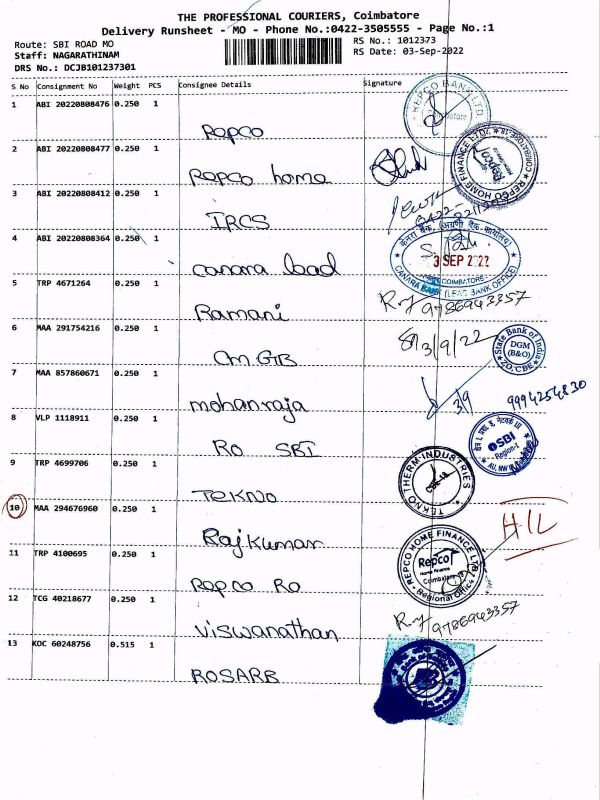 THE PROFESSIONAL COURIERS, Coimbatore
Delivery Runsheet - MO - Phone No.:0422-3505555 - Page No.:1
Route: SBI ROAD MO
RS No.: 1012373
Staff: NAGARATHINAM
RS Date: 03-Sep-2022
DRS No.: DCJB101237301
S No Consignment No Weight PCS Consignee Details Signature
1 ABI 20220808476 0.250 1
REPCO BANK LTD.
Repco
2 ABI 20220808477 0.250 1
REPCO HOME FINANCE LTD.
Repco home
3 ABI 20220808412 0.250 1
IRCS
4 ABI 20220808364 0.250 1
केनरा बैंक
3 SEP 2022
COIMBATORE
CANARA BANK (LEAD BANK OFFICE)
Canara lead
5 TRP 4671264 0.250 1
9786943357
Ramani
6 MAA 291754216 0.250 1
3/9/22
State Bank of India
DGM
(B&O)
Z.O, CBE
CMGTB
7 MAA 857860671 0.250 1
3/9 9994254830
mohanraja
8 VLP 1118911 0.250 1
SBI
Region-1
RO SBI
9 TRP 4699706 0.250 1
TEKNO THERM-INDUSTRIES
CBE-18
TEKNO
10 MAA 294676960 0.250 1
HIL
Rajkumar
11 TRP 4100695 0.250 1
REPCO HOME FINANCE LTD
Repco
Home Finance
Coimbatore
Regional Office
Repco Ro
12 TCG 40218677 0.250 1
9786943357
viswanathan
13 KOC 60248756 0.515 1
ROSARB